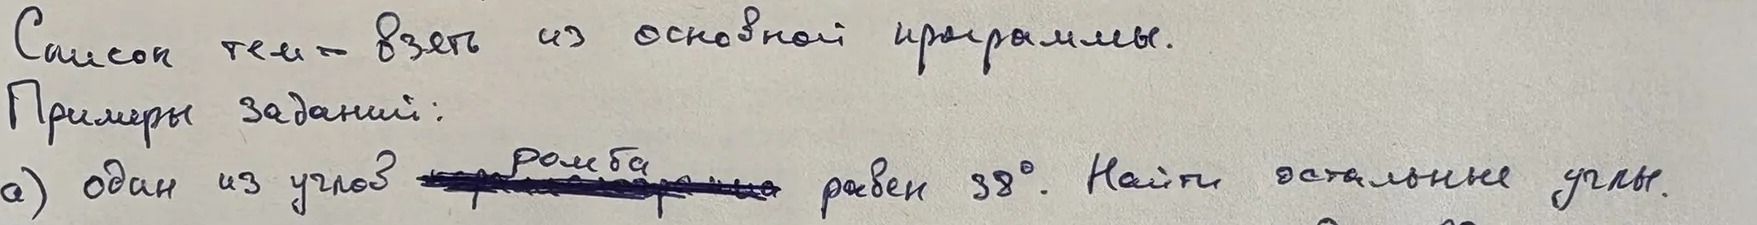 Список тем – взять из основной программы.
Примеры заданий:
а) один из углов ромба равен 38°. Найти остальные углы.